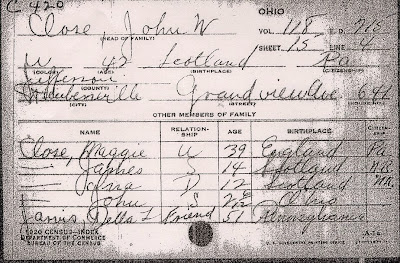 C 420 OHIO
Close, John W VOL. 118 E. D. 215
(HEAD OF FAMILY) SHEET 15 LINE 4
W 42 Scotland Pa
(COLOR) (AGE) (BIRTHPLACE) (CITIZENSHIP)
Jefferson
(COUNTY)
Steubenville Grandview Ave 641
(CITY) (STREET)
OTHER MEMBERS OF FAMILY
NAME RELATION-SHIP AGE BIRTHPLACE CITIZEN-
Close, Maggie W 39 England Pa
— James S 14 Scotland
— D 12 Scotland
— John S Ohio
Jarvis, Della L Friend 51 Pennsylvania
1920 CENSUS—INDEX
DEPARTMENT OF COMMERCE
BUREAU OF THE CENSUS
U. S. GOVERNMENT PRINTING OFFICE